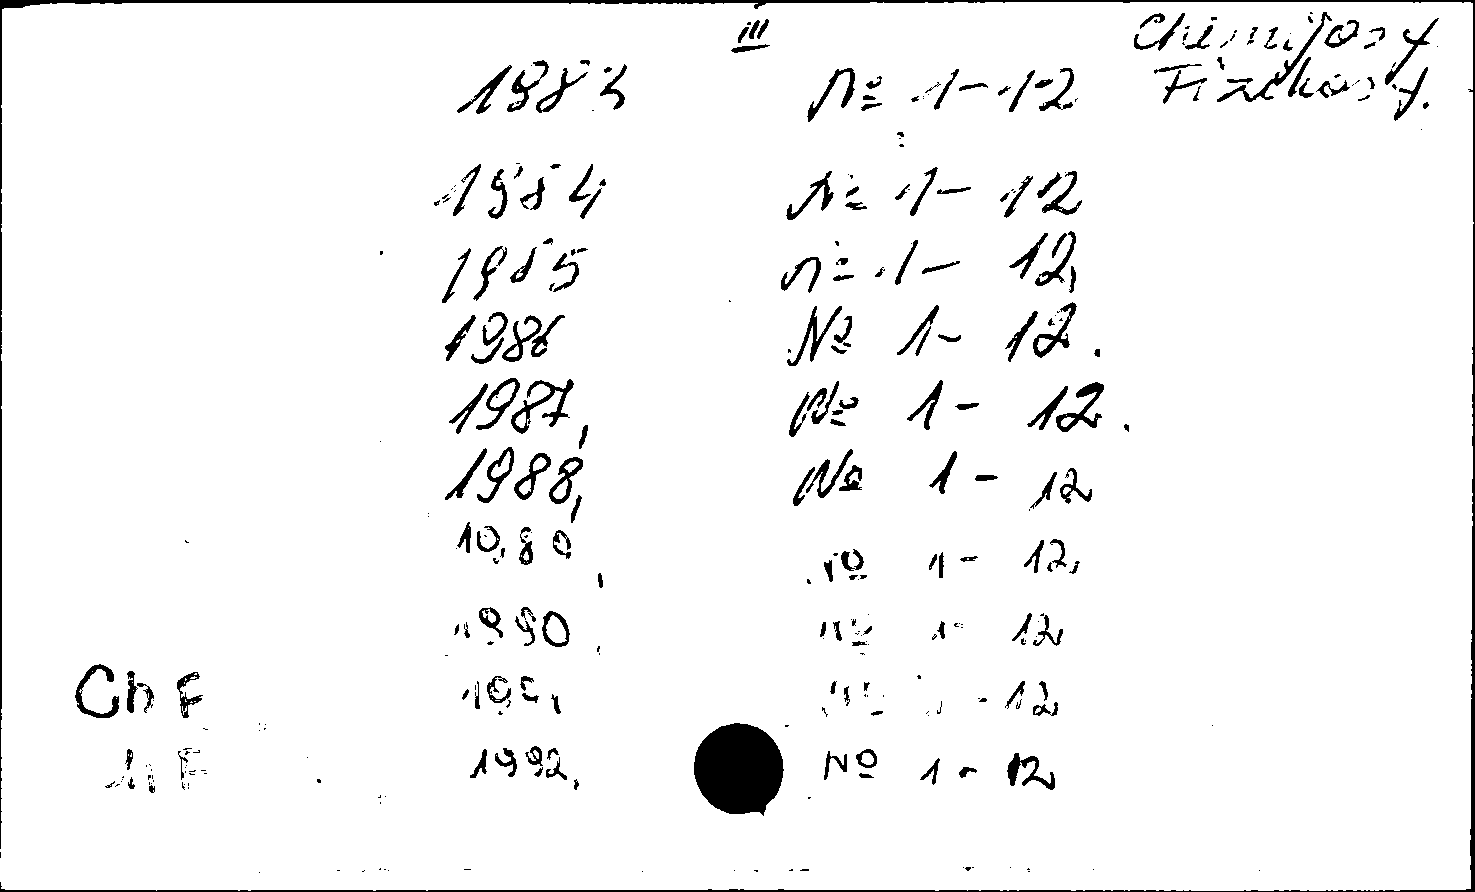 III
Chemijos f.
1983 № 1-12 Fizikos f.
1984 № 1-12
1985 № 1-12,
1986 № 1-12.
1987, № 1-12.
1988, № 1-12
1989, № 1-12,
1990, № 1-12
Ch F 1991 № 1-12
F 1992, № 1-12